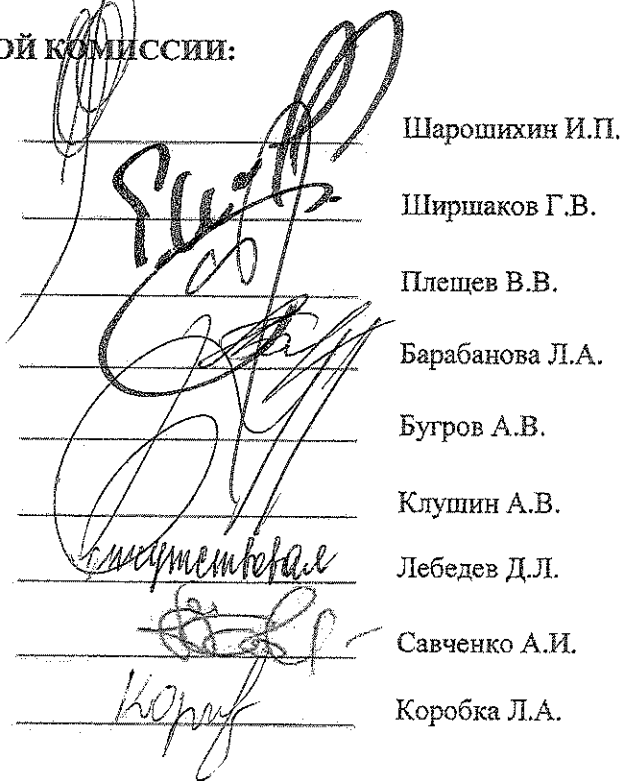 ОЙ КОМИССИИ:
Шарошихин И.П.
Ширшаков Г.В.
Плещев В.В.
Барабанова Л.А.
Бугров А.В.
Клушин А.В.
Лебедев Д.Л.
Савченко А.И.
Коробка Л.А.